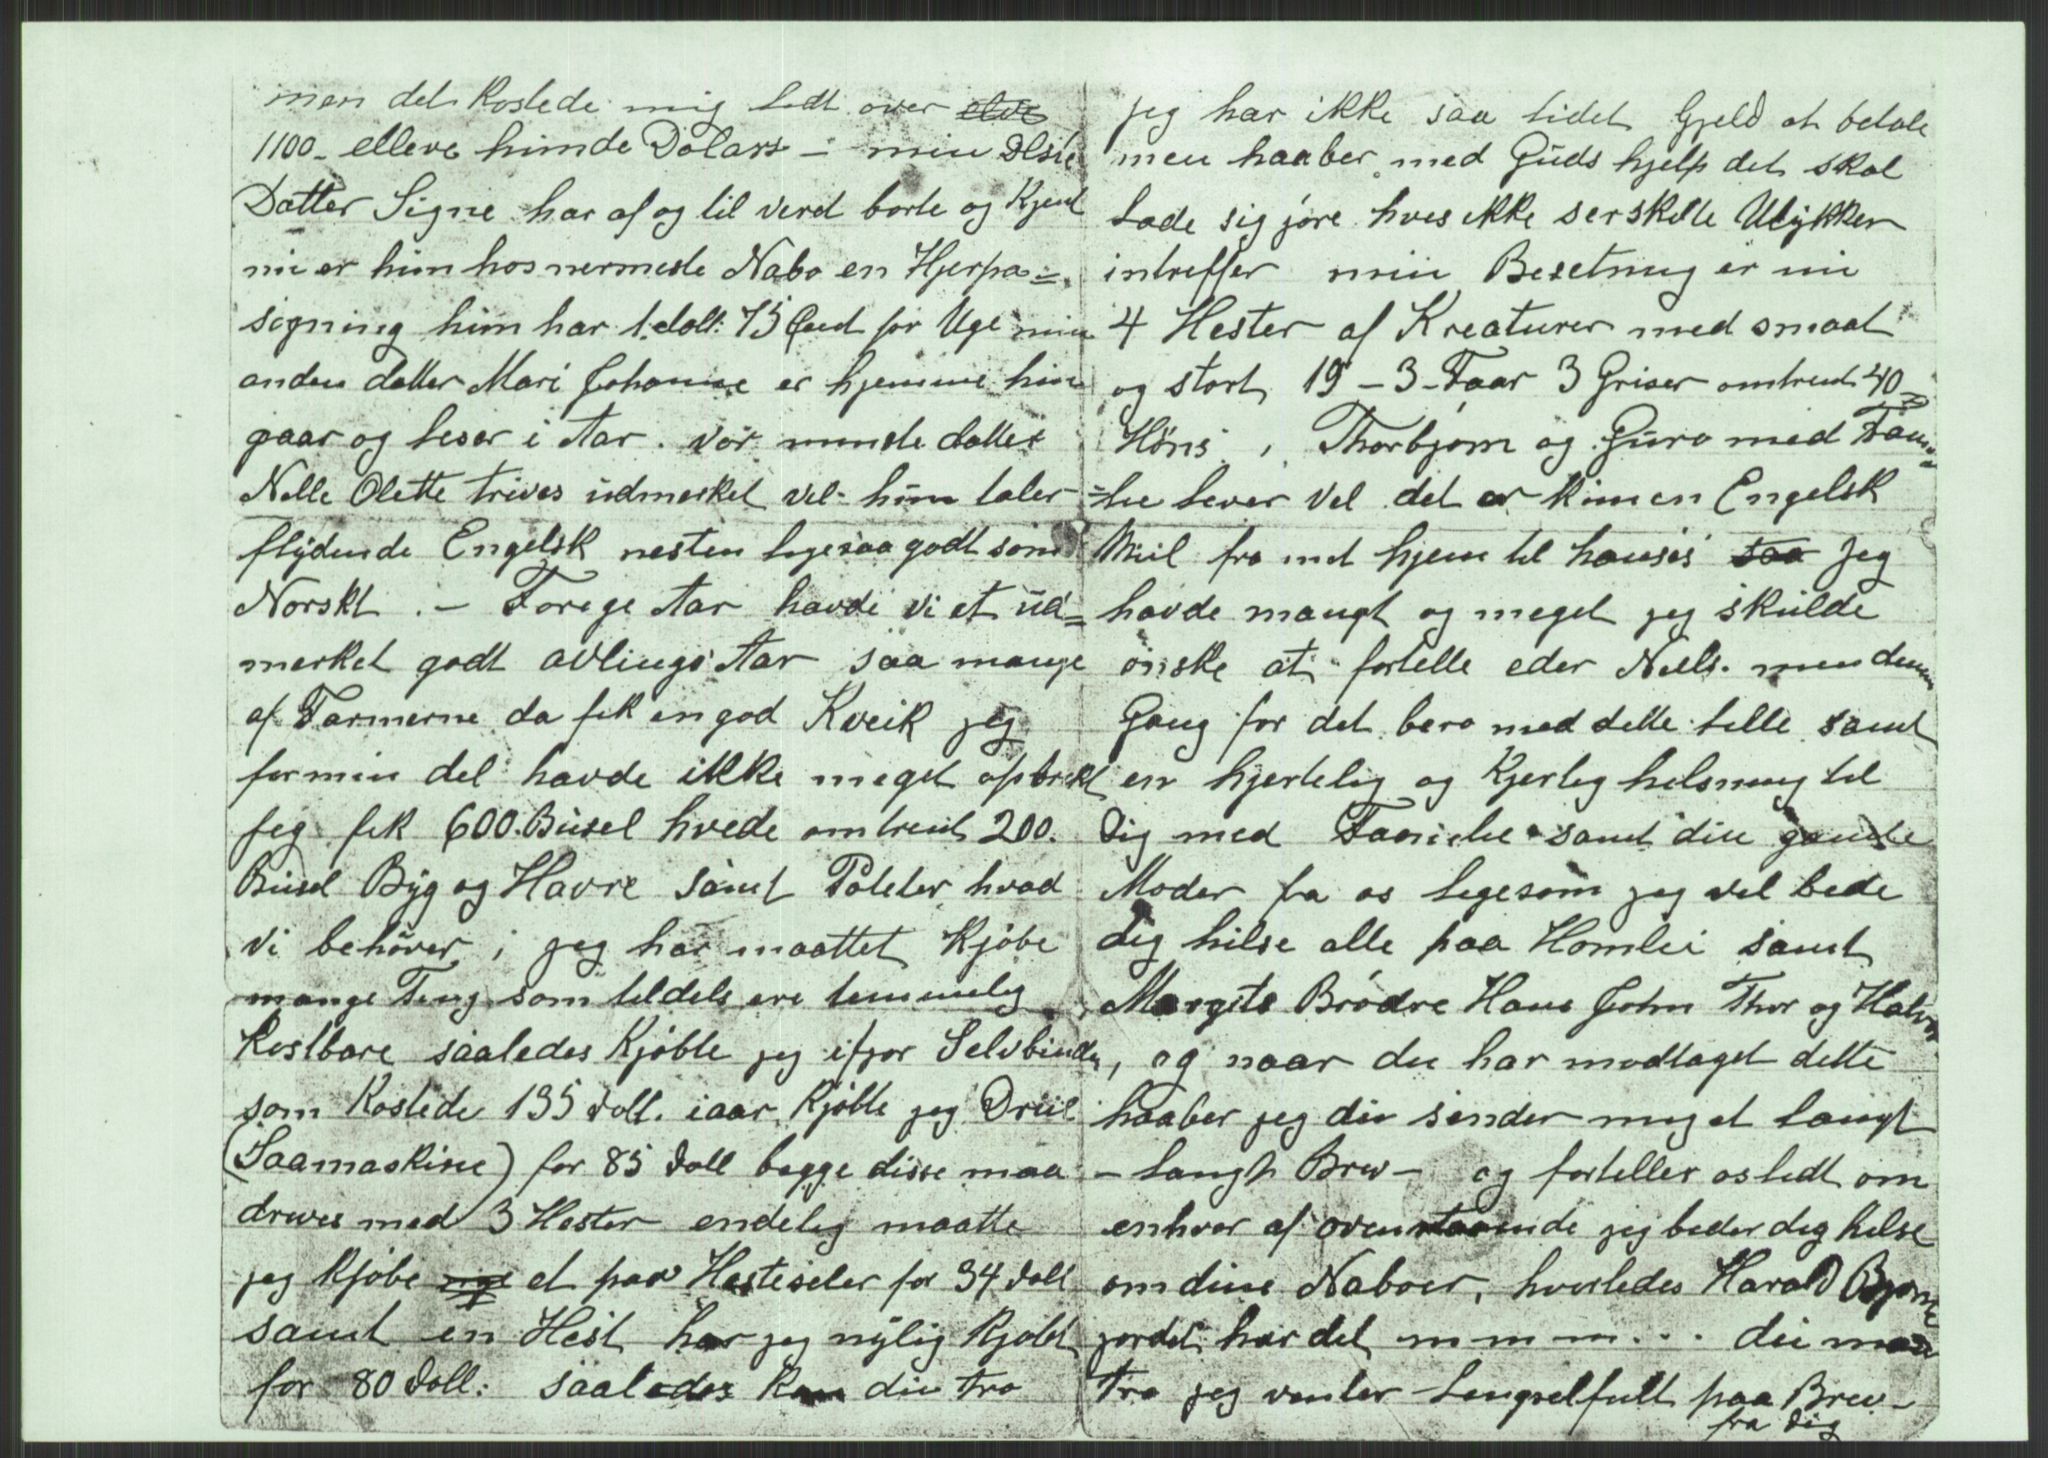 men det kostede mig lidt over elve
1100 - elleve hunde Dolars - min Elste
Datter Signe har af og til veret borte og Kjent
nu er hun hos nermeste Nabo en Hjerpa=
signing hun har 1 doll: 75 Cent pr Uge min
anden datter Mari Johanne er hjemme hun
gaar og leser i Aar. vor minste datter
Nelle Olette trives udmerket vel - hun taler
flydende Engelsk nesten ligesaa godt som
Norskt . - Forrige Aar havde vi et ud=
merket godt avlings Aar saa mange
af Farmerne da fik en god Kveik jeg
for min del havde ikke meget opbrekt
jeg fik 600 Busel hvede omtrent 200.
Busel Byg og Havre samt Poteter hvad
vi behöver, jeg har maattet kjöbe
mange Ting som tildels ere temmelig
kostbare saaledes Kjöbte jeg ifjor Selvbinder
som kostede 135 doll. iaar kjöbte jeg Driil
(Saamaskine) for 85 doll begge disse maa
drives med 3 Hester endelig maatte
jeg kjöbe et par Hesteseler for 34 doll
samt en Hest har jeg nylig kjöbt
for 80 doll: saaledes kan du tro
jeg har ikke saa lidet Gjeld at betale
men haaber med Guds hjelp det skal
lade sig jöre hvis ikke serskilte Ulykker
intreffer min Besetning er nu
4 Hester af Kreaturer med smaat
og stort 19 - 3 - Faar 3 Griser omtrent 40
Höns , Thorbjorn og Guro med Fami=
=lie lever vel det er kun en Engelsk
Miil fra mit hjem til hanses saa jeg
havde mangt og meget jeg skulde
önske at fortelle eder Niels. men denne
Gang for det bero med dette lille samt
en hjertelig og Kjerlig helsning til
Dig med Familie samt din gamle
Moder fra os ligesom jeg vil bede
dig hilse alle paa Homlei samt
Margits Brödre Hans John Thor og Halvor
, og naar du har modtaget dette
haaber jeg du sender mig et langt
- langt Brev - og forteller os lidt om
enhver af ovenstaaende jeg beder dig helse
om dine Naboer, hvorledes Harald Bjorn
jordet har det m m m ... du maa
tro jeg venter lengselfult paa Brev -
fra dig